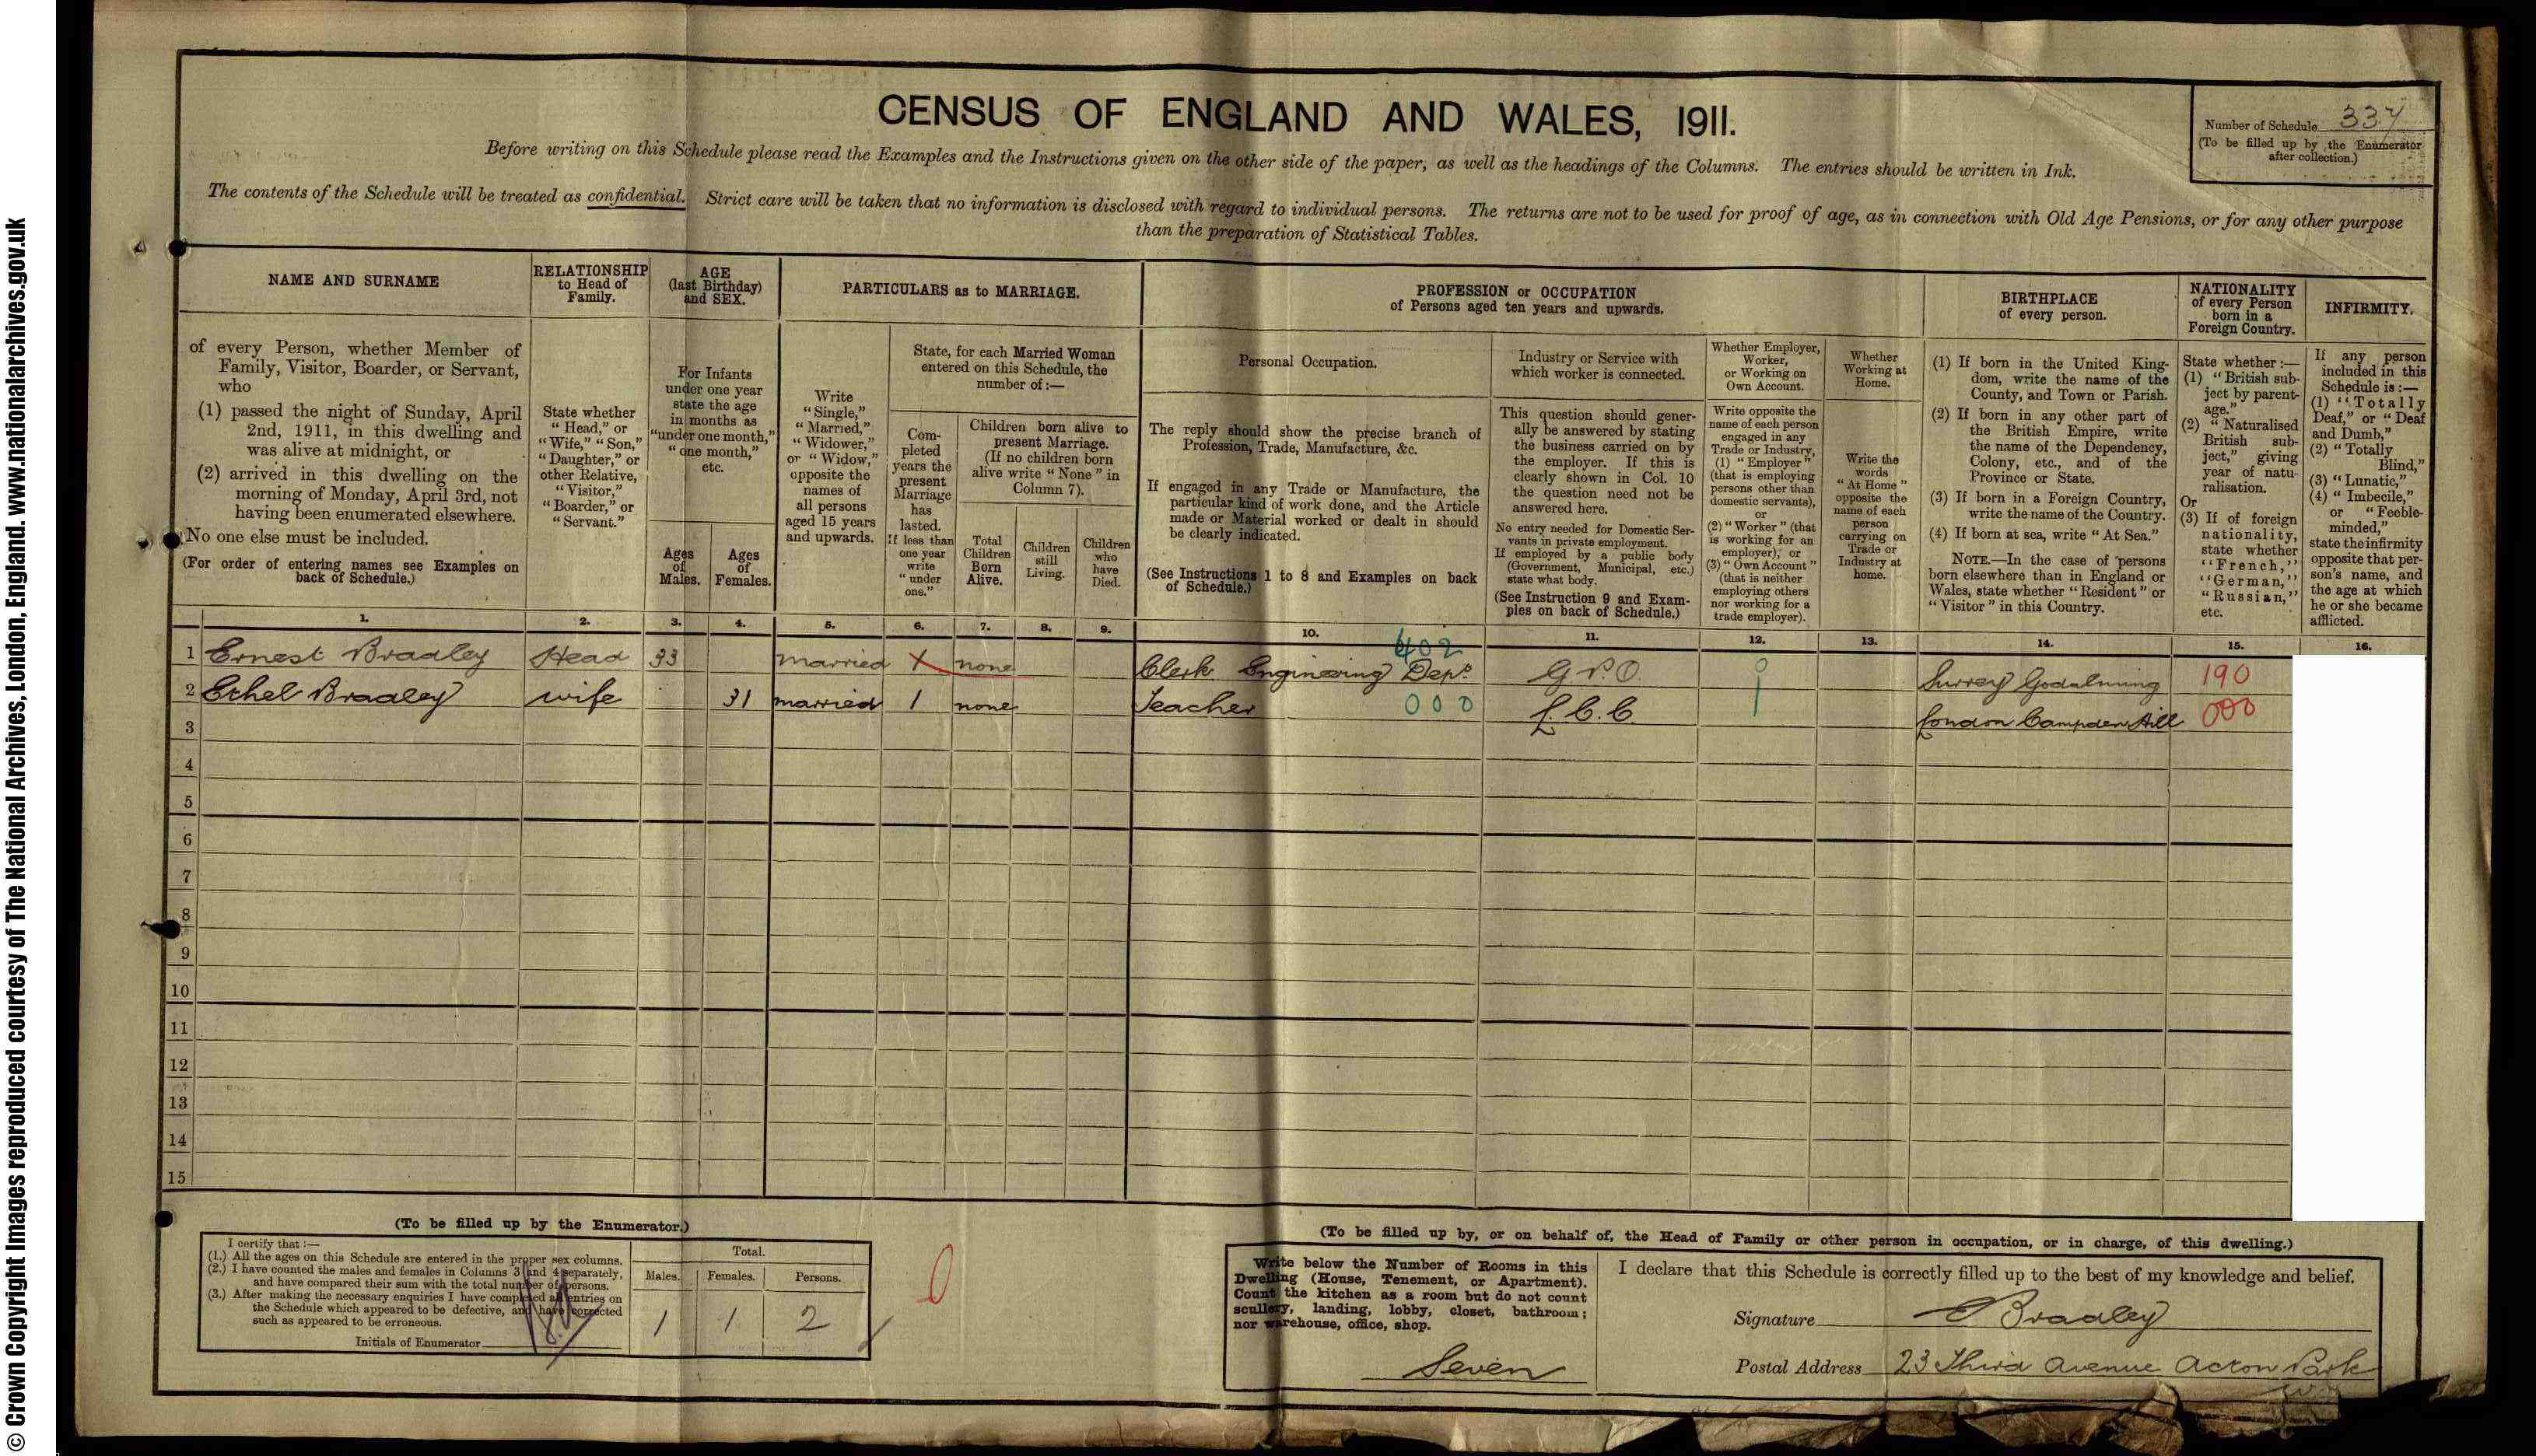 © Crown Copyright Images reproduced courtesy of The National Archives, London, England. www.nationalarchives.gov.uk
CENSUS OF ENGLAND AND WALES, 1911.
Number of Schedule 337
(To be filled up by the Enumerator
after collection.)
Before writing on this Schedule please read the Examples and the Instructions given on the other side of the paper, as well as the headings of the Columns. The entries should be written in Ink.
The contents of the Schedule will be treated as confidential. Strict care will be taken that no information is disclosed with regard to individual persons. The returns are not to be used for proof of age, as in connection with Old Age Pensions, or for any other purpose
than the preparation of Statistical Tables.
NAME AND SURNAME
of every Person, whether Member of
Family, Visitor, Boarder, or Servant,
who
(1) passed the night of Sunday, April
2nd, 1911, in this dwelling and
was alive at midnight, or
(2) arrived in this dwelling on the
morning of Monday, April 3rd, not
having been enumerated elsewhere.
No one else must be included.
(For order of entering names see Examples on
back of Schedule.)
RELATIONSHIP
to Head of
Family.
State whether
"Head," or
"Wife," "Son,"
"Daughter," or
other Relative,
"Visitor,"
"Boarder," or
"Servant."
AGE
(last Birthday)
and SEX.
For Infants
under one year
state the age
in months as
"under one month,"
"one month,"
etc.
Ages
of
Males.
Ages
of
Females.
PARTICULARS as to MARRIAGE.
Write
"Single,"
"Married,"
"Widower,"
or "Widow,"
opposite the
names of
all persons
aged 15 years
and upwards.
State, for each Married Woman
entered on this Schedule, the
number of:—
Com-
pleted
years the
present
Marriage
has
lasted.
If less than
one year
write
"under
one."
Children born alive to
present Marriage.
(If no children born
alive write "None" in
Column 7).
Total
Children
Born
Alive.
Children
still
Living.
Children
who
have
Died.
PROFESSION or OCCUPATION
of Persons aged ten years and upwards.
Personal Occupation.
The reply should show the precise branch of
Profession, Trade, Manufacture, &c.
If engaged in any Trade or Manufacture, the
particular kind of work done, and the Article
made or Material worked or dealt in should
be clearly indicated.
(See Instructions 1 to 8 and Examples on back
of Schedule.)
Industry or Service with
which worker is connected.
This question should gener-
ally be answered by stating
the business carried on by
the employer. If this is
clearly shown in Col. 10
the question need not be
answered here.
No entry needed for Domestic Ser-
vants in private employment.
If employed by a public body
(Government, Municipal, etc.)
state what body.
(See Instruction 9 and Exam-
ples on back of Schedule.)
Whether Employer,
Worker,
or Working on
Own Account.
Write opposite the
name of each person
engaged in any
Trade or Industry,
(1) "Employer"
(that is employing
persons other than
domestic servants),
or
(2) "Worker" (that
is working for an
employer), or
(3) "Own Account"
(that is neither
employing others
nor working for a
trade employer).
Whether
Working at
Home.
Write the
words
"At Home"
opposite the
name of each
person
carrying on
Trade or
Industry at
home.
BIRTHPLACE
of every person.
(1) If born in the United King-
dom, write the name of the
County, and Town or Parish.
(2) If born in any other part of
the British Empire, write
the name of the Dependency,
Colony, etc., and of the
Province or State.
(3) If born in a Foreign Country,
write the name of the Country.
(4) If born at sea, write "At Sea."
NOTE.—In the case of persons
born elsewhere than in England or
Wales, state whether "Resident" or
"Visitor" in this Country.
NATIONALITY
of every Person
born in a
Foreign Country.
State whether:—
(1) "British sub-
ject by parent-
age."
(2) "Naturalised
British sub-
ject," giving
year of natu-
ralisation.
Or
(3) If of foreign
nationality,
state whether
"French,"
"German,"
"Russian,"
etc.
INFIRMITY.
If any person
included in this
Schedule is:—
(1) "Totally
Deaf," or "Deaf
and Dumb,"
(2) "Totally
Blind,"
(3) "Lunatic,"
(4) "Imbecile,"
or "Feeble-
minded,"
state the infirmity
opposite that per-
son's name, and
the age at which
he or she became
afflicted.
1. 2. 3. 4. 5. 6. 7. 8. 9. 10. 11. 12. 13. 14. 15. 16.
402
1 Ernest Bradley Head 33 married 1 none Clerk Engineering Dept G.P.O. 0 Surrey Godalming 190
2 Ethel Bradley wife 31 married 1 none Teacher 000 L.C.C. 1 London Campden Hill 000
3
4
5
6
7
8
9
10
11
12
13
14
15
(To be filled up by the Enumerator.)
I certify that:—
(1.) All the ages on this Schedule are entered in the proper sex columns.
(2.) I have counted the males and females in Columns 3 and 4 separately,
and have compared their sum with the total number of persons.
(3.) After making the necessary enquiries I have completed all entries on
the Schedule which appeared to be defective, and have corrected
such as appeared to be erroneous.
Initials of Enumerator
Total.
Males. Females. Persons.
1 1 2
0
(To be filled up by, or on behalf of, the Head of Family or other person in occupation, or in charge, of this dwelling.)
Write below the Number of Rooms in this
Dwelling (House, Tenement, or Apartment).
Count the kitchen as a room but do not count
scullery, landing, lobby, closet, bathroom;
nor warehouse, office, shop.
Seven
I declare that this Schedule is correctly filled up to the best of my knowledge and belief.
Signature E Bradley
Postal Address 23 Third Avenue Acton Park